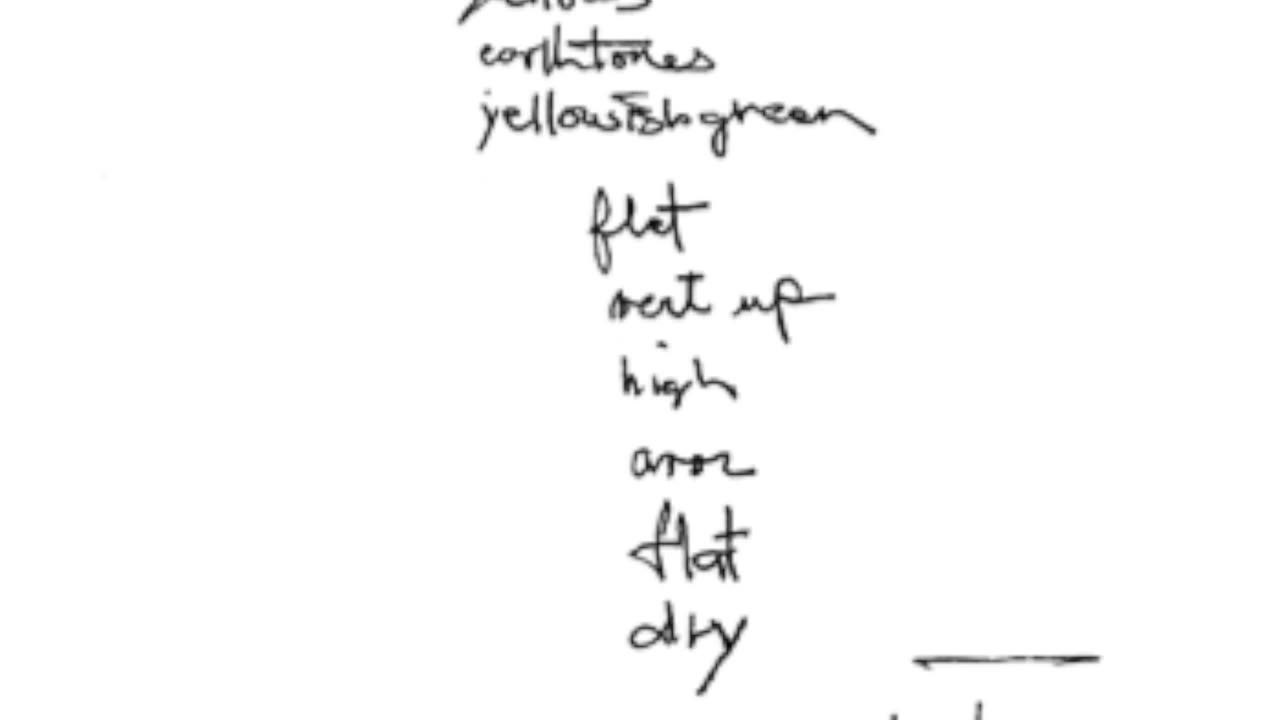 earthtones
yellowish green
flat
vert up
high
flat
dry